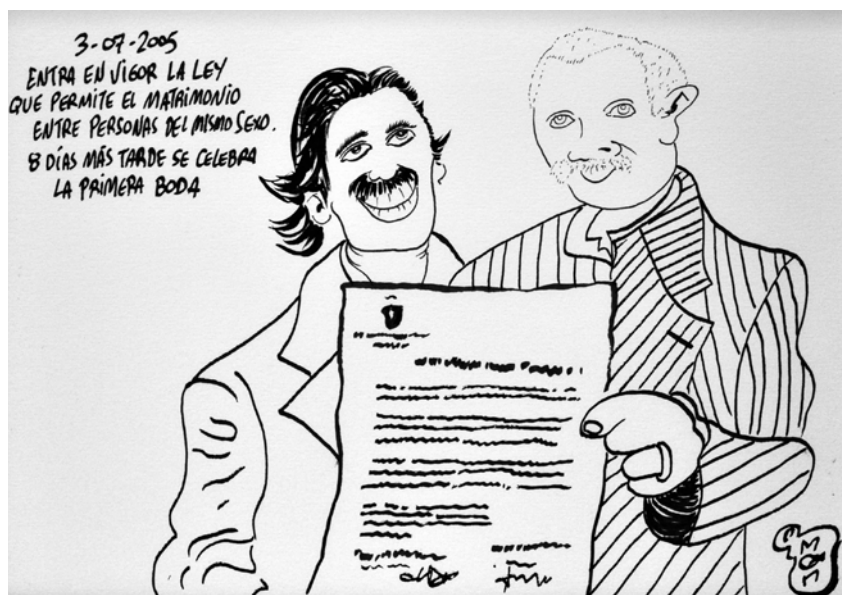 3-07-2005
ENTRA EN VIGOR LA LEY
QUE PERMITE EL MATRIMONIO
ENTRE PERSONAS DEL MISMO SEXO.
8 DÍAS MÁS TARDE SE CELEBRA
LA PRIMERA BODA